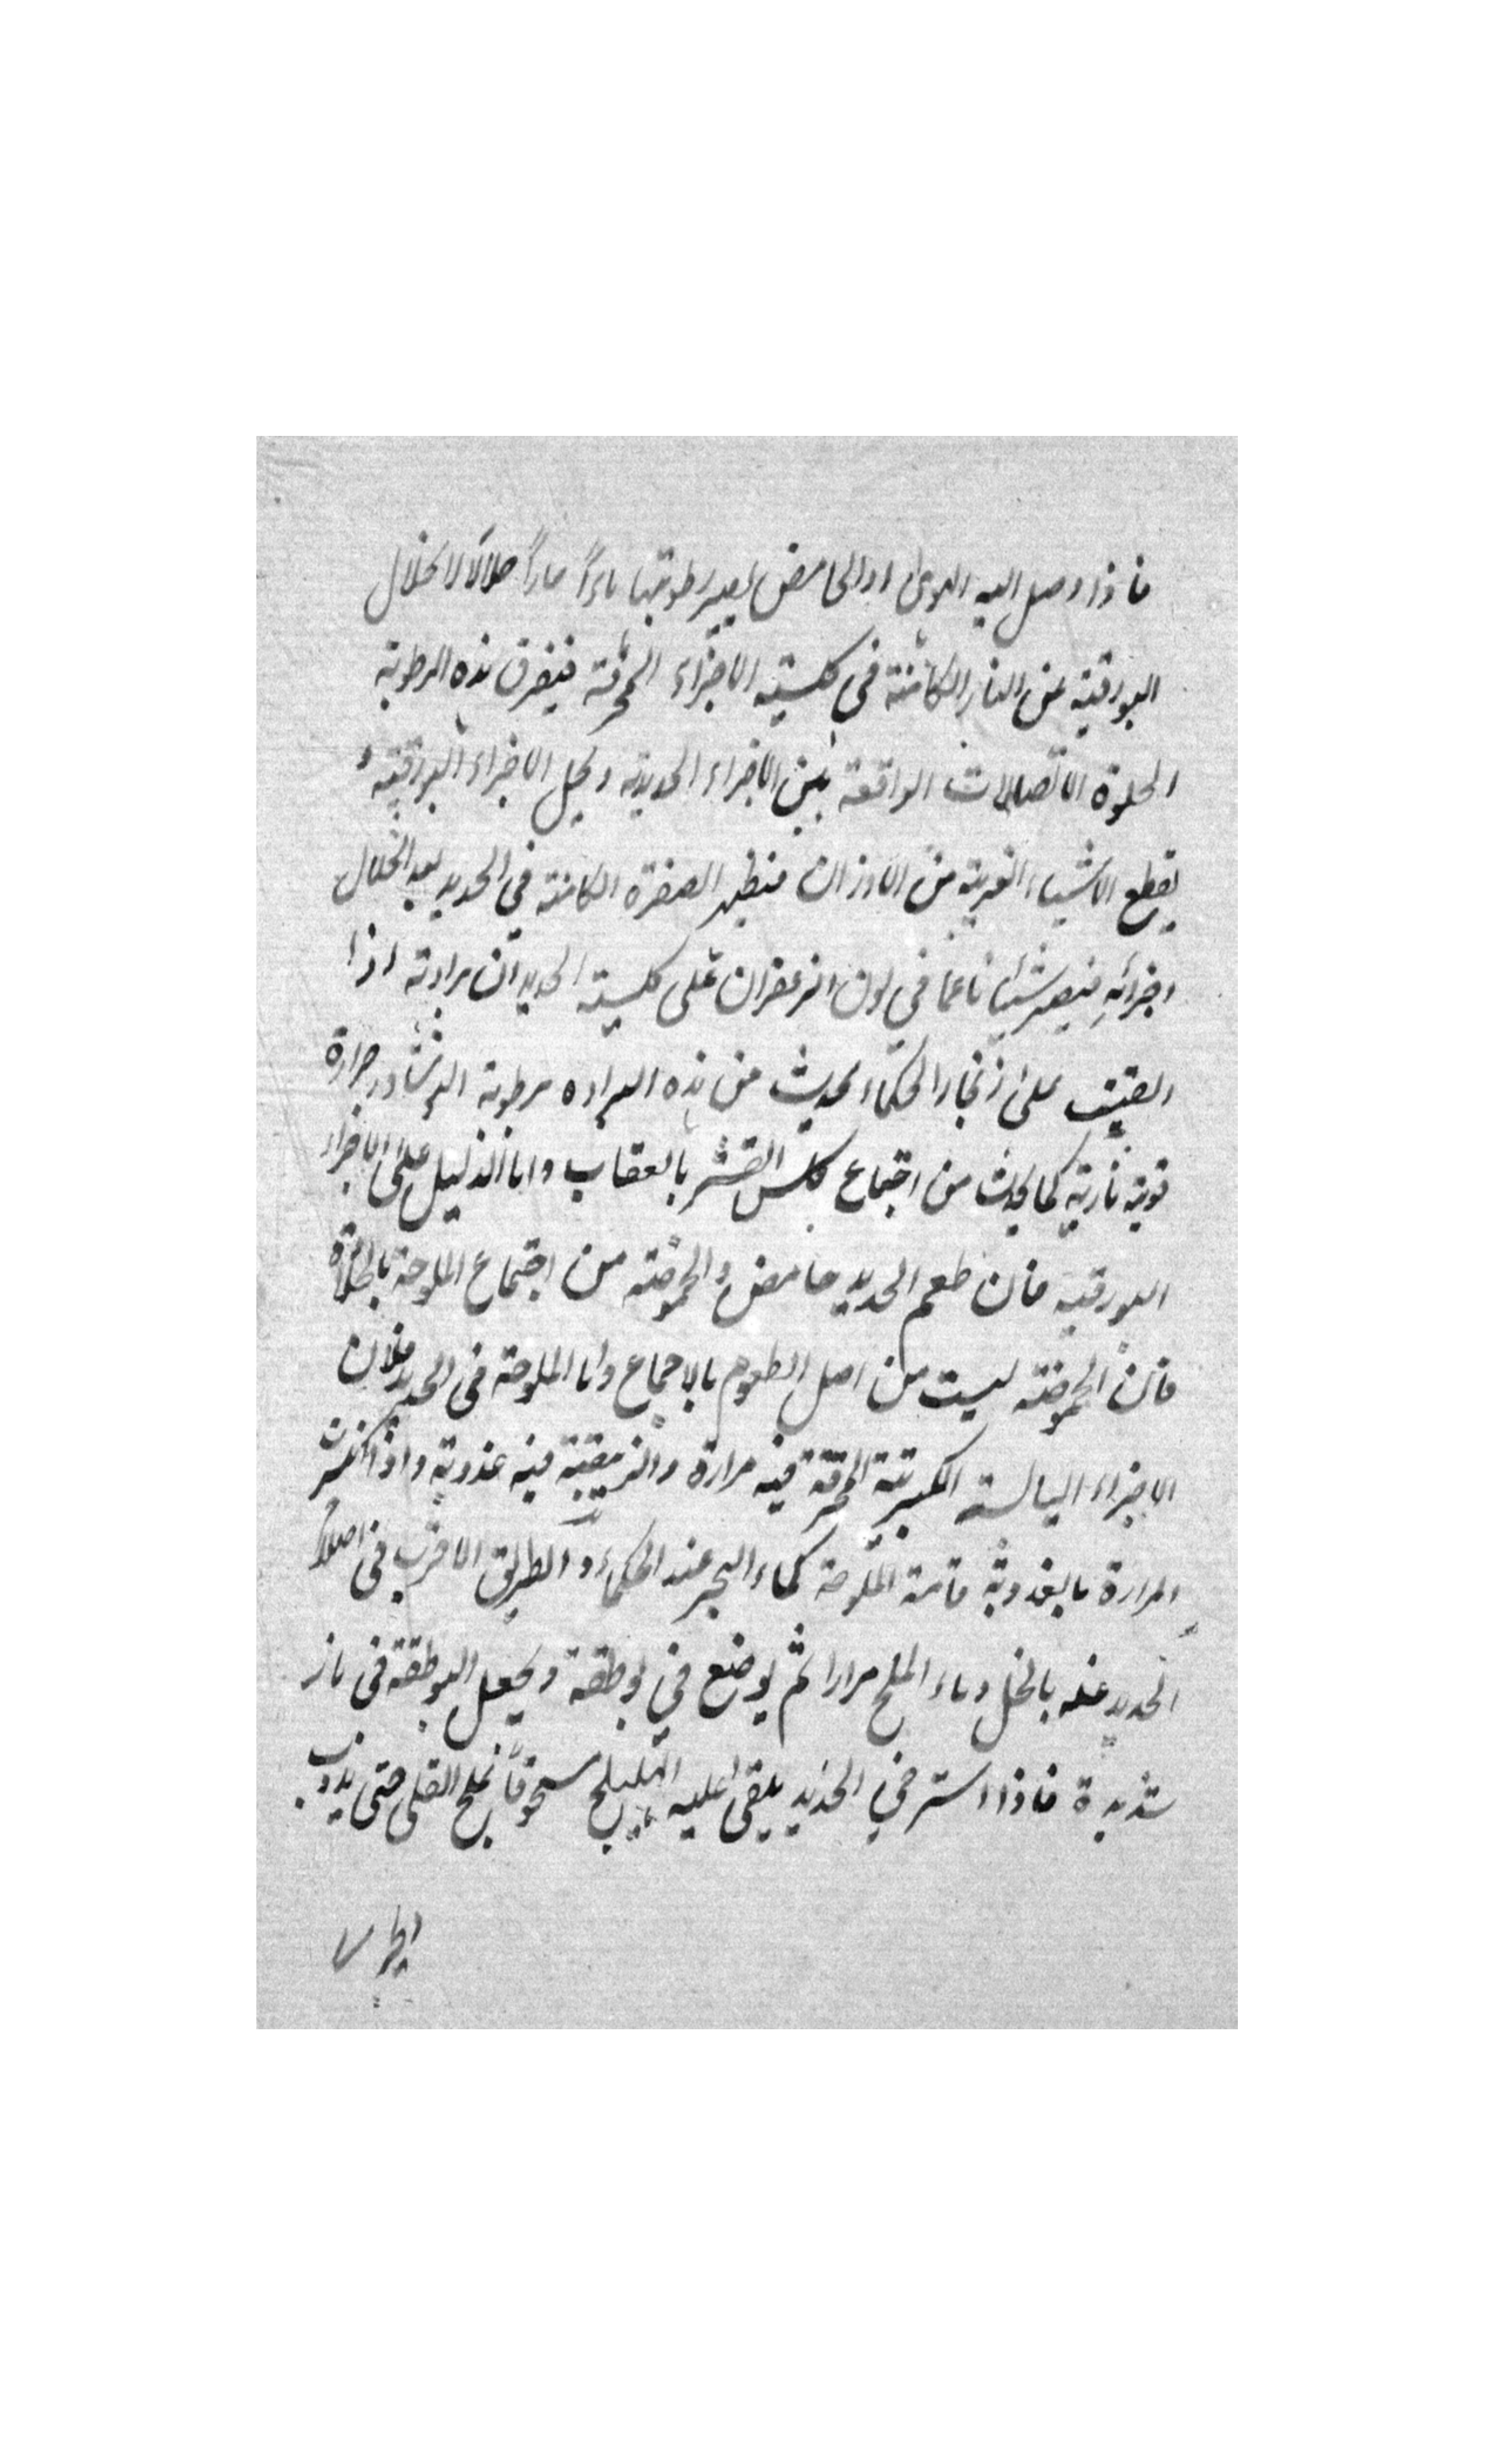 فاذا وصل اليه الهوىٰ او الحامض يصير رطوبتها ماءً حاراً حلالا لانحلال
البورقية من النار الكامنة في كلسية الاجزاء المحرقة فيفرق هذه الرطوبة
الحلوة الاتصالات الواقعة بين الاجزاء الحديدية ويحل الاجزاء البورقية و
يقطع الاشياء الغريبة من الاوزان فيظهر الصفرة الكامنة في الحديد بعد انحلال
اجزائه فيصير شيئا ناعما في لون الزعفران على كلسية الحديد ان برادته اذا
القيت على زنجار الحكماء يحدث من هذه البراده برطوبة النوشادر حرارة
قوية نارية كما يحدث من اجتماع كلس القشر بالعقاب واما الدليل على الاجزاء
البورقية فان طعم الحديد حامض والحموضة من اجتماع الملوحة بالحلاوة
فان الحموضة ليست من اصل الطعوم بالاجماع واما الملوحة في الحديد فلان
الاجزاء اليابسة الكبريتية المحرقة فيه مرارة والزيبقية فيه عذوبة واذا كثرت
المرارة بالعذوبة قامت الملوحة كماء البحر عند الحكماء والطريق الاقرب في اصلاح
الحديد غسله بالخل وماء الملح مرارا ثم يوضع في بوطقة ويجعل البوطقة في نار
شديدة فاذا استرخي الحديد يلقى عليه الهليلج مسحوقاً بملح القلى حتى يذوب